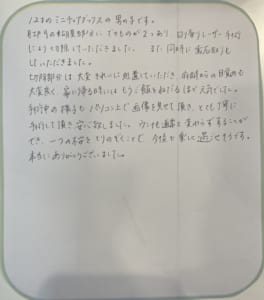 12才のミニチュアダックスの男の子です。
肛門の右側に、できものが2つあり、日帰りレーザー手術
により切除していただきました。また同時に歯石取りも
していただきました。
切除部分は大変きれいに処置していただき、麻酔からの目覚めも
大変良く、家に帰る時にはもうご飯をねだるほど元気でした。
手術中の様子もパソコン上で画像を見せて頂き、とても丁寧に
手術して頂き安心致しました。ウンチも通常と変わらずすることが
でき、一つの不安をとりのぞくことで、今後も楽しく過ごせそうです。
本当にありがとうございました。